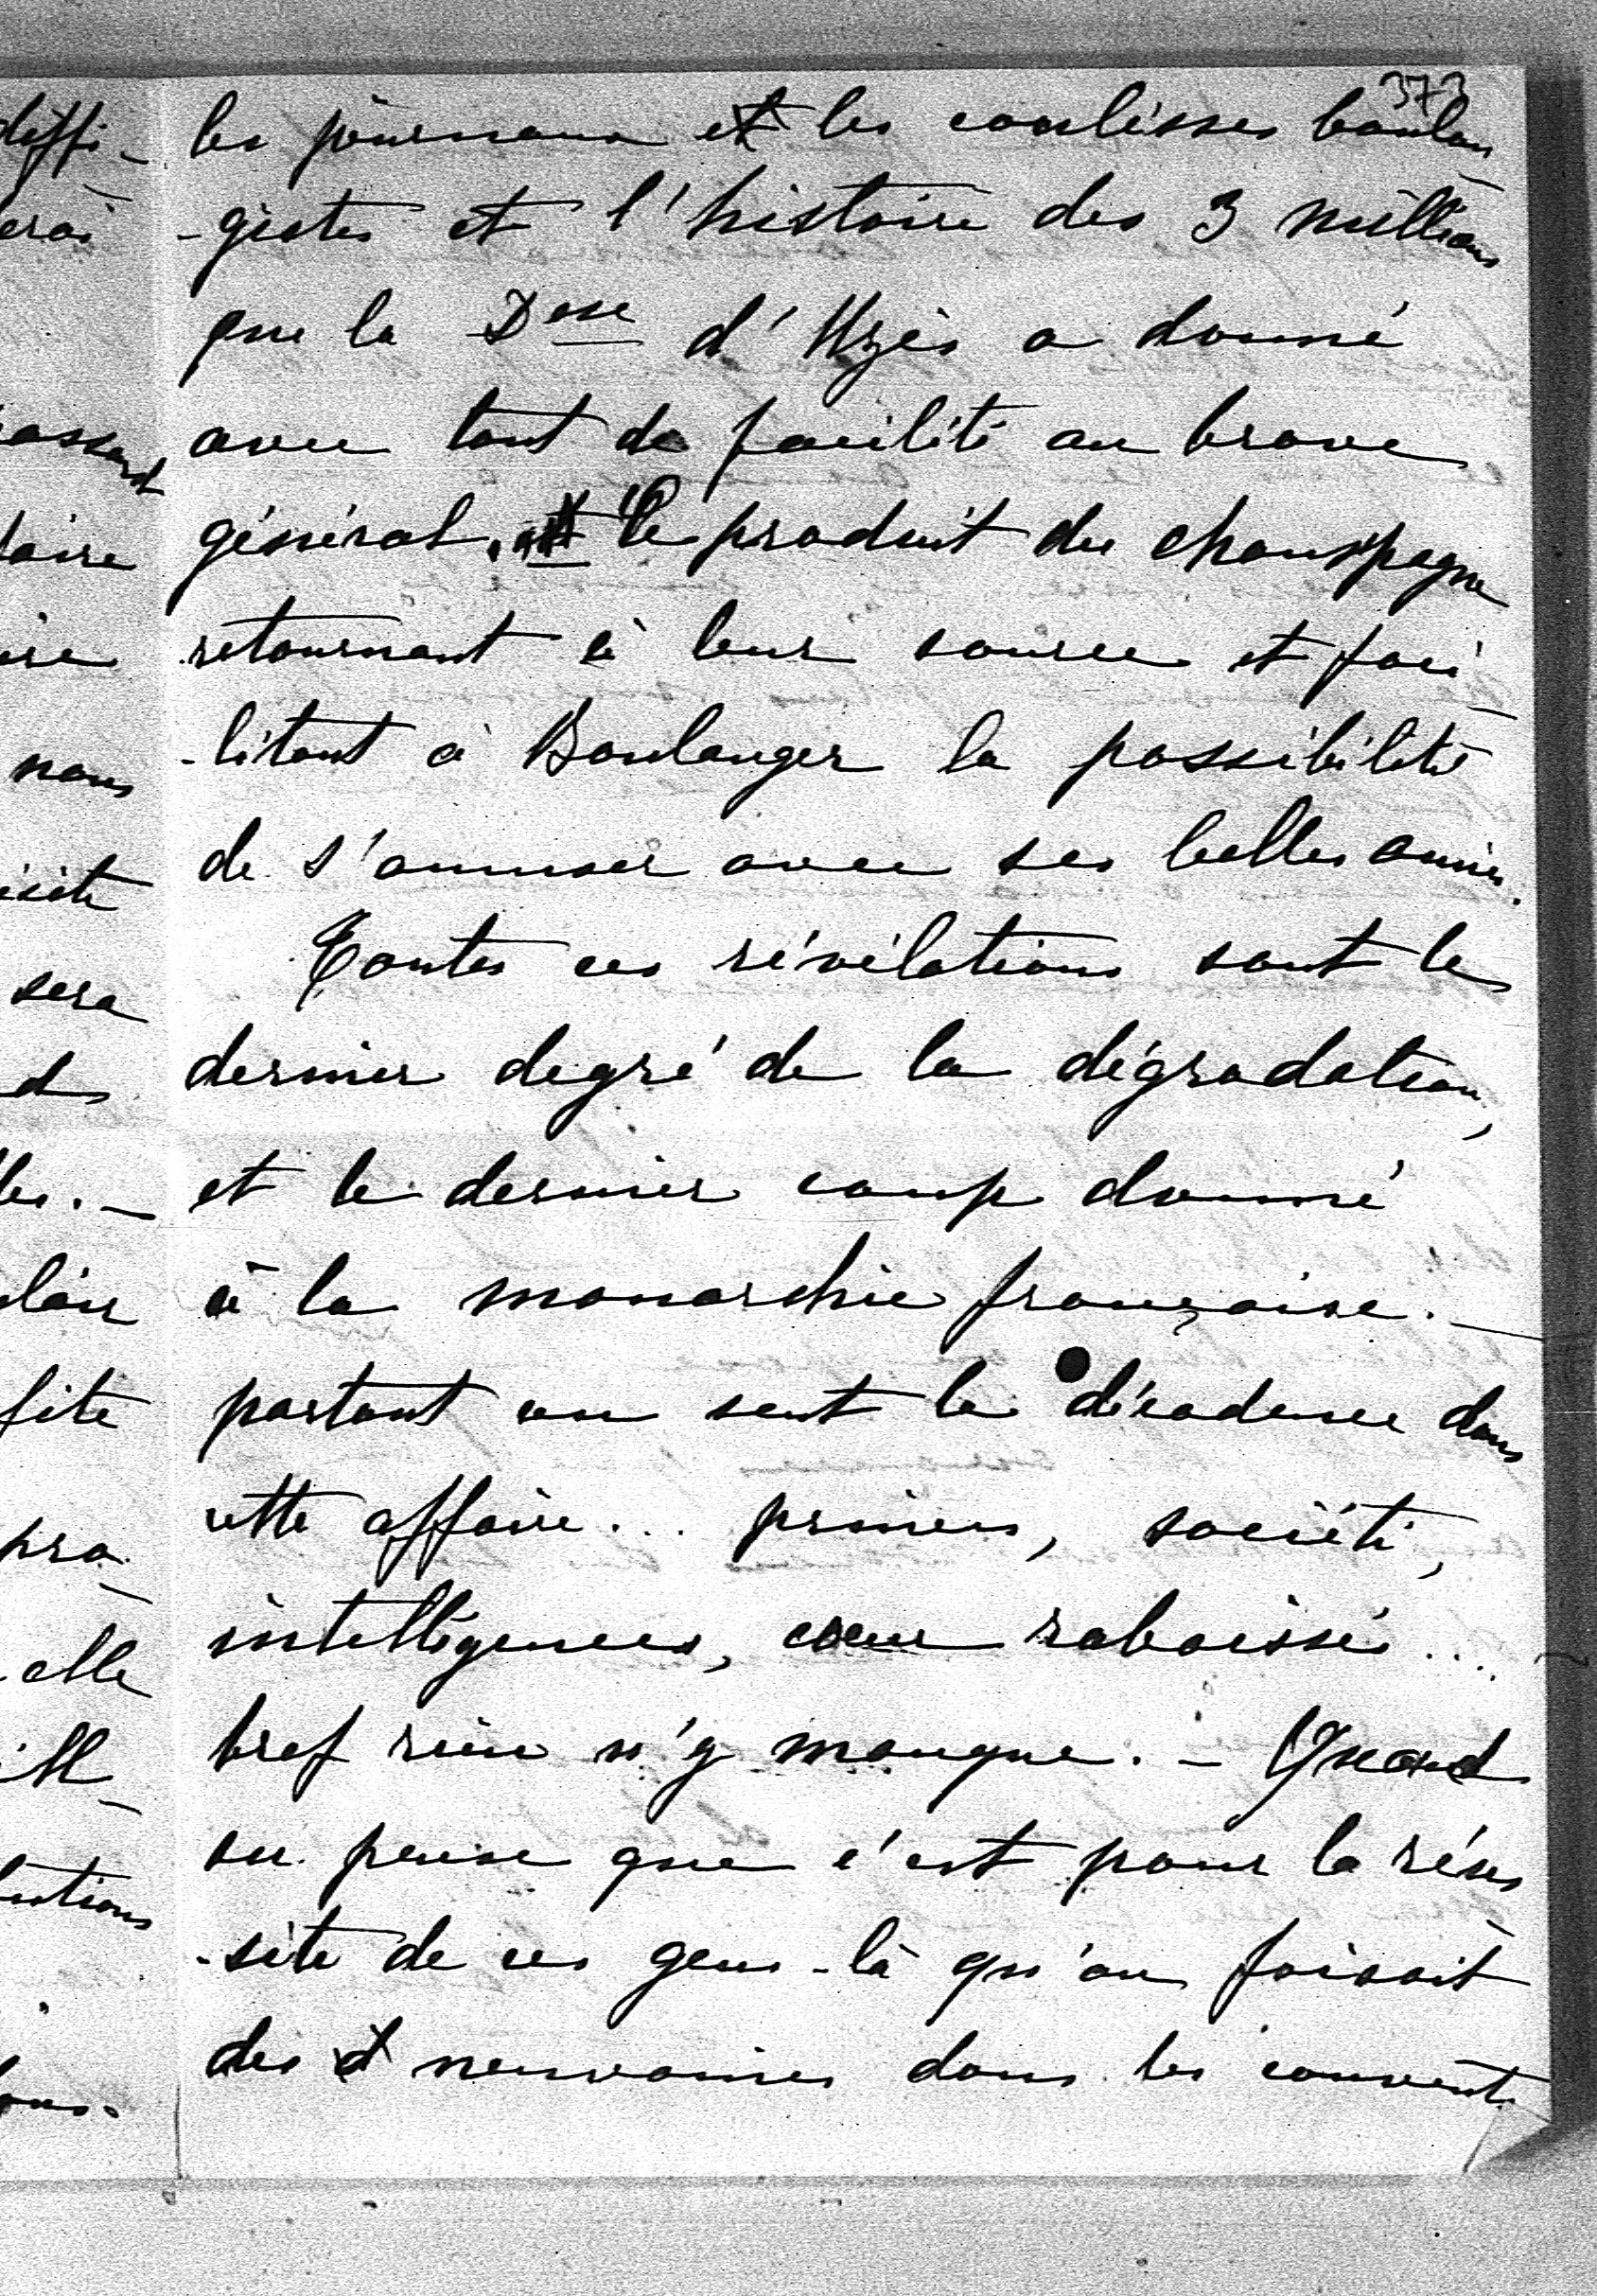 373
les journaux et les coulisses boulan
-gistes et l'histoire des 3 millions
que la Dsse d'Uzès a donné
avec tant de facilité au brave
général, le produit du champagne
retournant à leur source et faci
-litant à Boulanger la possibilité
de s'amuser avec ses belles amies.
Toutes ces révélations sont le
dernier degré de la dégradation,
et le dernier coup donné
à la monarchie française. _
partout on sent la décadence dans
cette affaire... princes, société,
intelligences, cœur rabaissés ....
bref rien n'y manque. - Quand
on pense que c'est pour la réus
-site de ces gens-là qu'on faisait
des neuvaines dans les couvents